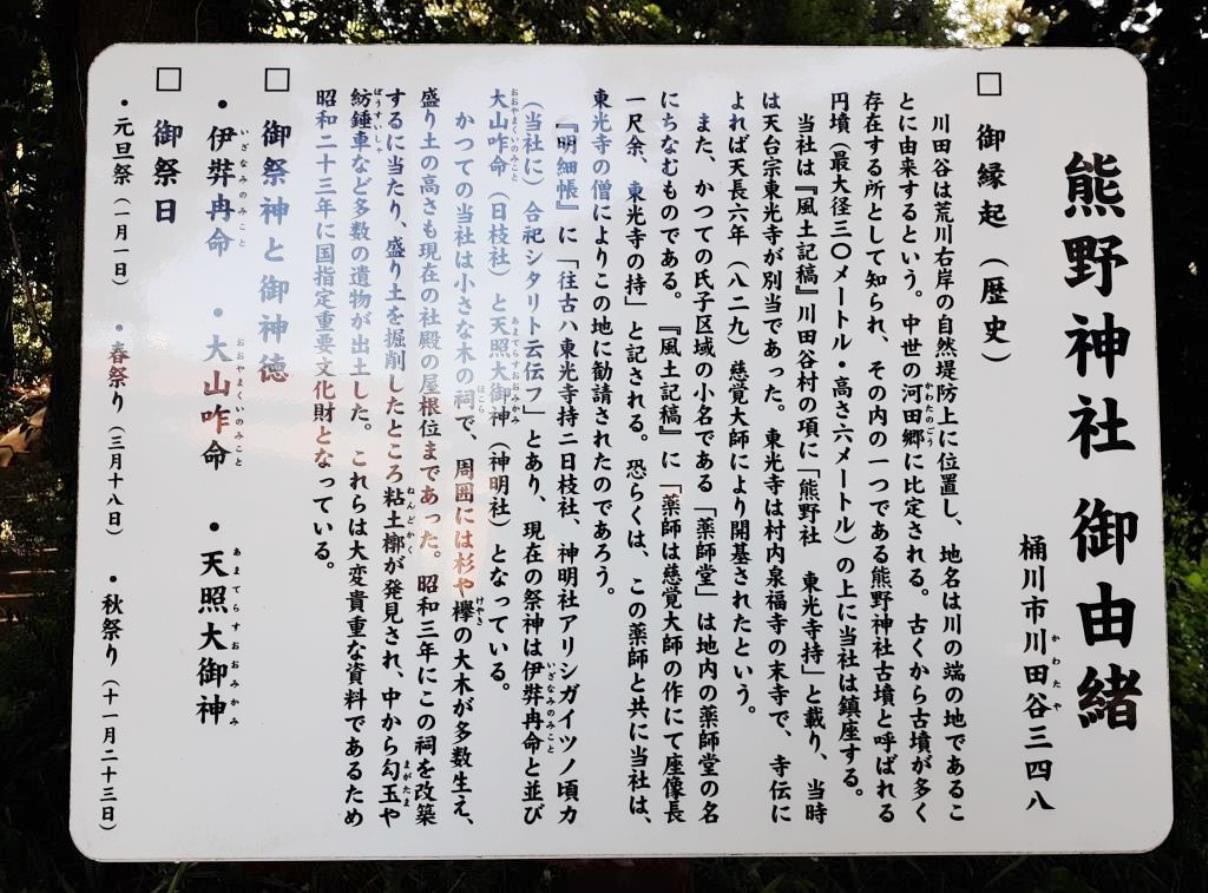 熊野神社 御由緒
桶川市川田谷三四八
かわたや
□ 御縁起（歴史）
川田谷は荒川右岸の自然堤防上に位置し、地名は川の端の地であるこ
とに由来するという。中世の河田郷に比定される。古くから古墳が多く
かわたのごう
存在する所として知られ、その内の一つである熊野神社古墳と呼ばれる
円墳（最大径三〇メートル・高さ六メートル）の上に当社は鎮座する。
当社は『風土記稿』川田谷村の項に「熊野社 東光寺持」と載り、当時
は天台宗東光寺が別当であった。東光寺は村内泉福寺の末寺で、寺伝に
よれば天長六年（八二九）慈覚大師により開基されたという。
また、かつての氏子区域の小名である「薬師堂」は地内の薬師堂の名
にちなむものである。『風土記稿』に「薬師は慈覚大師の作にて座像長
一尺余、東光寺の持」と記される。恐らくは、この薬師と共に当社は、
東光寺の僧によりこの地に勧請されたのであろう。
『明細帳』に「往古ハ東光寺持ニ日枝社、神明社アリシガイツノ頃カ
（当社に）合祀シタリト云伝フ」とあり、現在の祭神は伊弊冉命と並び
いざなみのみこと
大山咋命（日枝社）と天照大御神（神明社）となっている。
おおやまくいのみこと
あまてらすおおみかみ
かつての当社は小さな木の祠で、周囲には杉や欅の大木が多数生え、
ほこら
けやき
盛り土の高さも現在の社殿の屋根位まであった。昭和三年にこの祠を改築
するに当たり、盛り土を掘削したところ粘土槨が発見され、中から勾玉や
ねんどかく
まがたま
紡錘車など多数の遺物が出土した。これらは大変貴重な資料であるため
ぼうすいし
昭和二十三年に国指定重要文化財となっている。
□ 御祭神と御神徳
・伊弊冉命 ・大山咋命 ・天照大御神
いざなみのみこと
おおやまくいのみこと
あまてらすおおみかみ
□ 御祭日
・元旦祭（一月一日） ・春祭り（三月十八日） ・秋祭り（十一月二十三日）